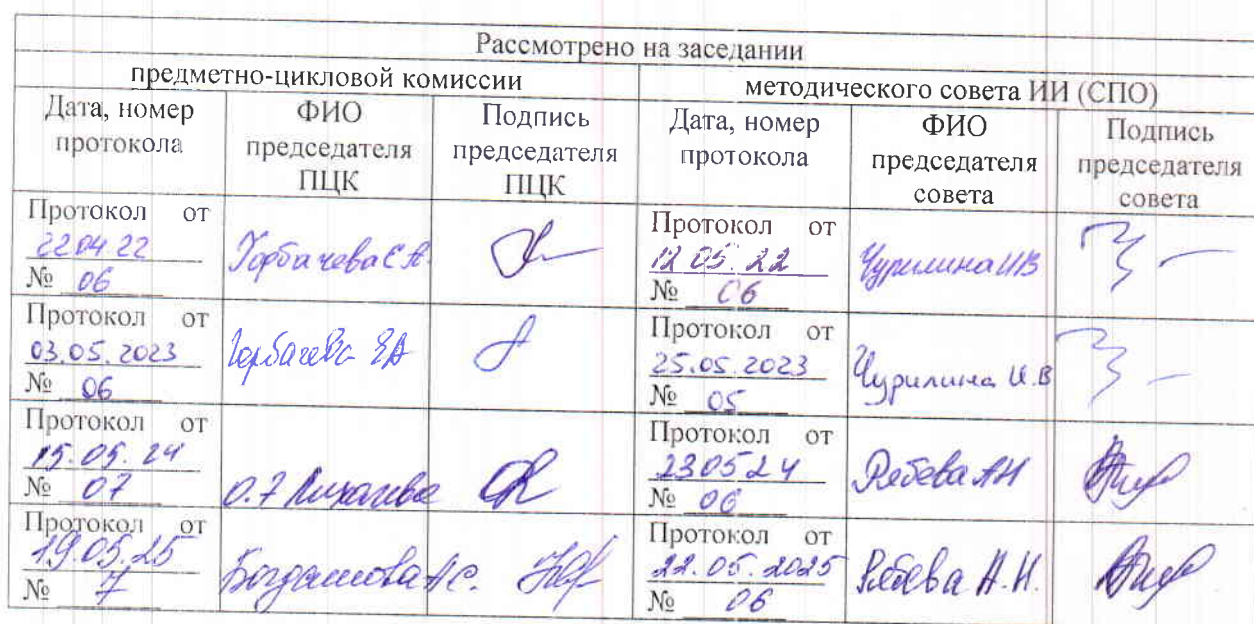 Рассмотрено на заседании
предметно-цикловой комиссии методического совета ИИ (СПО)
Дата, номер протокола
ФИО председателя ПЦК
Подпись председателя ПЦК
Дата, номер протокола
ФИО председателя совета
Подпись председателя совета
Протокол от
22 04 22
№ 06
Горбачева Е А.
Протокол от
12 05. 22
№ 06
Чурилина ИВ
Протокол от
03.05.2023
№ 06
Горбачева ЕА
Протокол от
25.05.2023
№ 05
Чурилина И.В
Протокол от
15.05.24
№ 07
Протокол от
23 05 24
№ 06
Рябева АН
Протокол от
19.05.25
№ 7
Богданова А С.
Протокол от
22.05.2025
№ 06
Рябева А.Н.